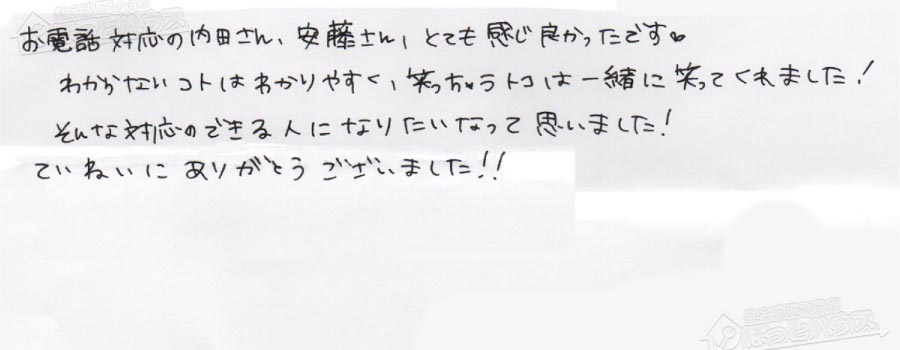 お電話対応の内田さん、安藤さん、とても感じ良かったです♥
わからないコトはわかりやすく、笑っちゃうトコは一緒に笑ってくれました!
そんな対応のできる人になりたいなって思いました!
ていねいにありがとうございました!!
ほっとハウス